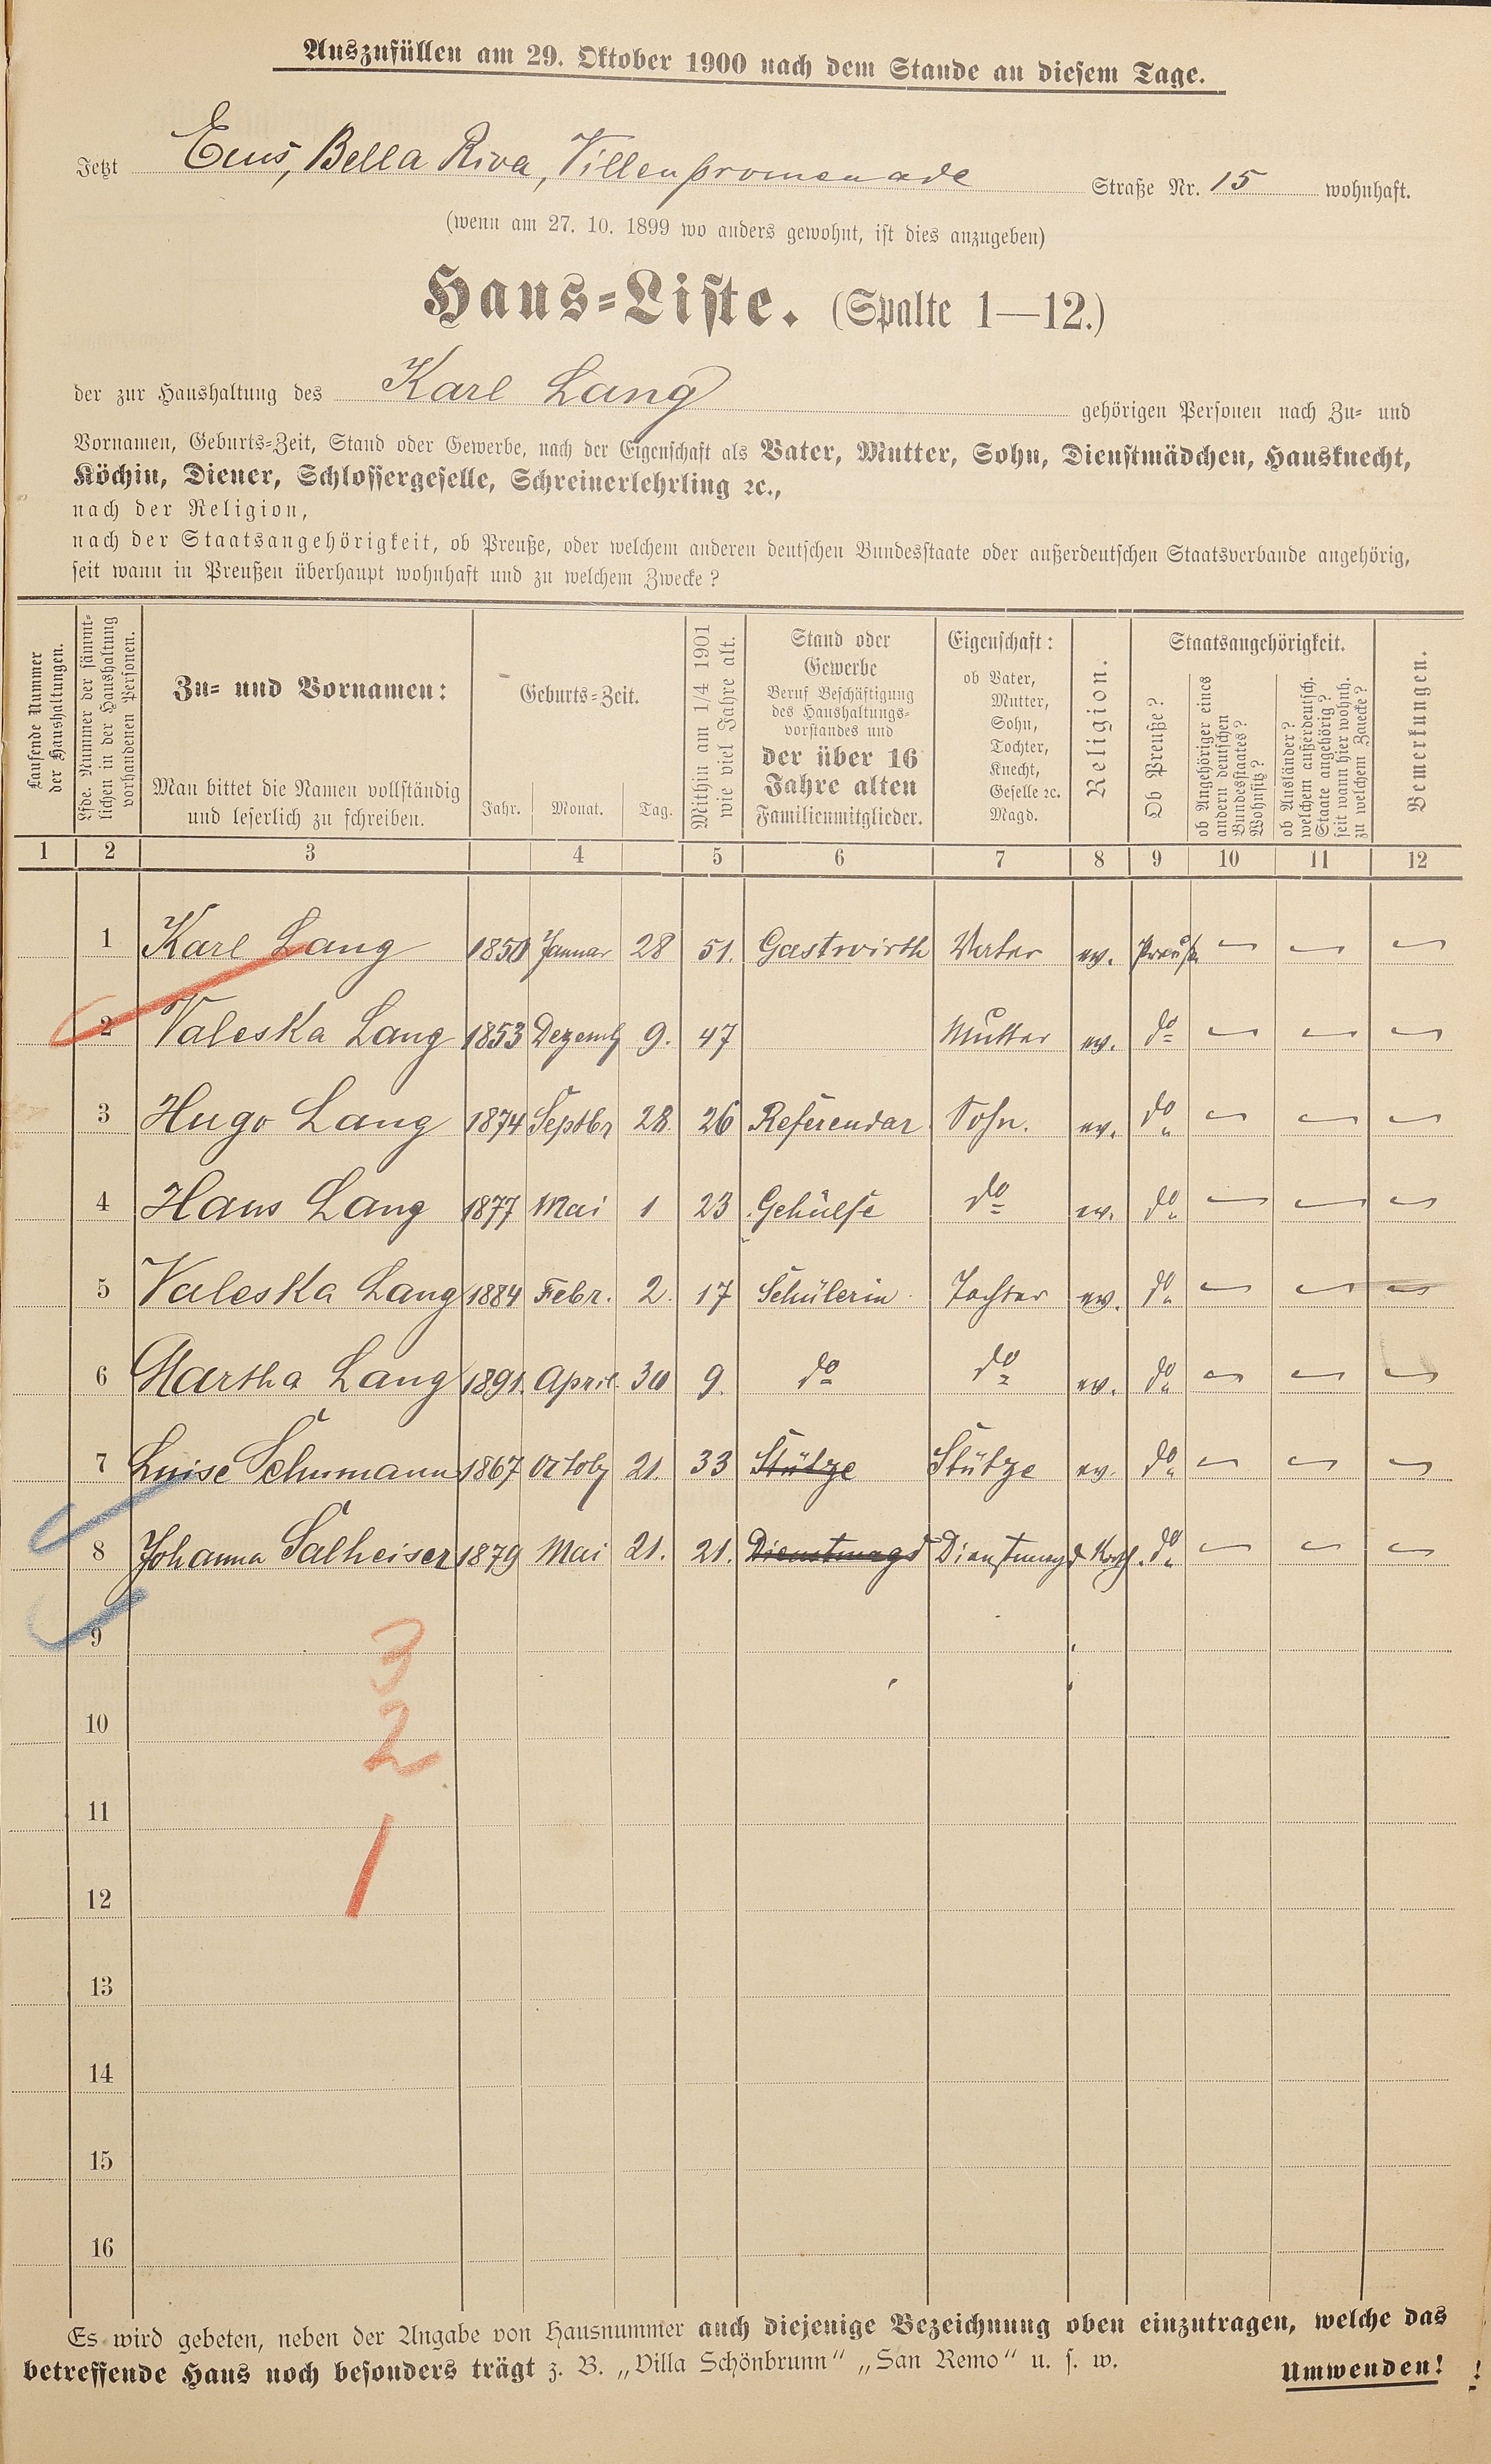 Auszufüllen am 29. Oktober 1900 nach dem Stande an diesem Tage.
Jetzt Ems, Bella Riva, Villenpromenade Straße Nr. 15 wohnhaft.
(wenn am 27. 10. 1899 wo anders gewohnt, ist dies anzugeben)
Haus-Liste. (Spalte 1—12.)
der zur Haushaltung des Karl Lang gehörigen Personen nach Zu- und
Vornamen, Geburts-Zeit, Stand oder Gewerbe, nach der Eigenschaft als Vater, Mutter, Sohn, Dienstmädchen, Hausknecht,
Köchin, Diener, Schlossergeselle, Schreinerlehrling ꝛc.,
nach der Religion,
nach der Staatsangehörigkeit, ob Preuße, oder welchem anderen deutschen Bundesstaate oder außerdeutschen Staatsverbande angehörig,
seit wann in Preußen überhaupt wohnhaft und zu welchem Zwecke?
Laufende Nummer
der Haushaltungen.
Lfde. Nummer der sämmt-
lichen in der Haushaltung
vorhandenen Personen.
Zu- und Vornamen:
Man bittet die Namen vollständig
und leserlich zu schreiben.
Geburts-Zeit.
Jahr. Monat. Tag.
Mithin am 1/4 1901
wie viel Jahre alt.
Stand oder
Gewerbe
Beruf Beschäftigung
des Haushaltungs-
vorstandes und
der über 16
Jahre alten
Familienmitglieder.
Eigenschaft:
ob Vater,
Mutter,
Sohn,
Tochter,
Knecht,
Geselle ꝛc.
Magd.
Religion.
Staatsangehörigkeit.
Ob Preuße?
ob Angehöriger eines
andern deutschen
Bundesstaates?
Wohnsitz?
ob Ausländer?
welchem außerdeutsch.
Staate angehörig?
seit wann hier wohnh.
zu welchem Zwecke?
Bemerkungen.
1 2 3 4 5 6 7 8 9 10 11 12
1 Karl Lang 1850 Januar 28 51. Gastwirth Vater ev. Preuße — — —
2 Valeska Lang 1853 Dezemb 9. 47 Mutter ev. do — — —
3 Hugo Lang 1874 Septbr 28. 26 Referendar Sohn. ev. do — — —
4 Hans Lang 1877 Mai 1 23 Gehülfe do ev. do — — —
5 Valeska Lang 1884 Febr. 2. 17 Schülerin Tochter ev. do — — —
6 Martha Lang 1891. April. 30 9. do do ev. do — — —
7 Luise Schumann 1867 Octob 21. 33 Stütze Stütze ev. do — — —
8 Johanna Salheiser 1879 Mai 21. 21. Dienstmagd Dienstmagd Kath. do — — —
9
3
10
2
11
1
12
13
14
15
16
Es wird gebeten, neben der Angabe von Hausnummer auch diejenige Bezeichnung oben einzutragen, welche das
betreffende Haus noch besonders trägt z. B. „Villa Schönbrunn“ „San Remo“ u. s. w. Umwenden! !